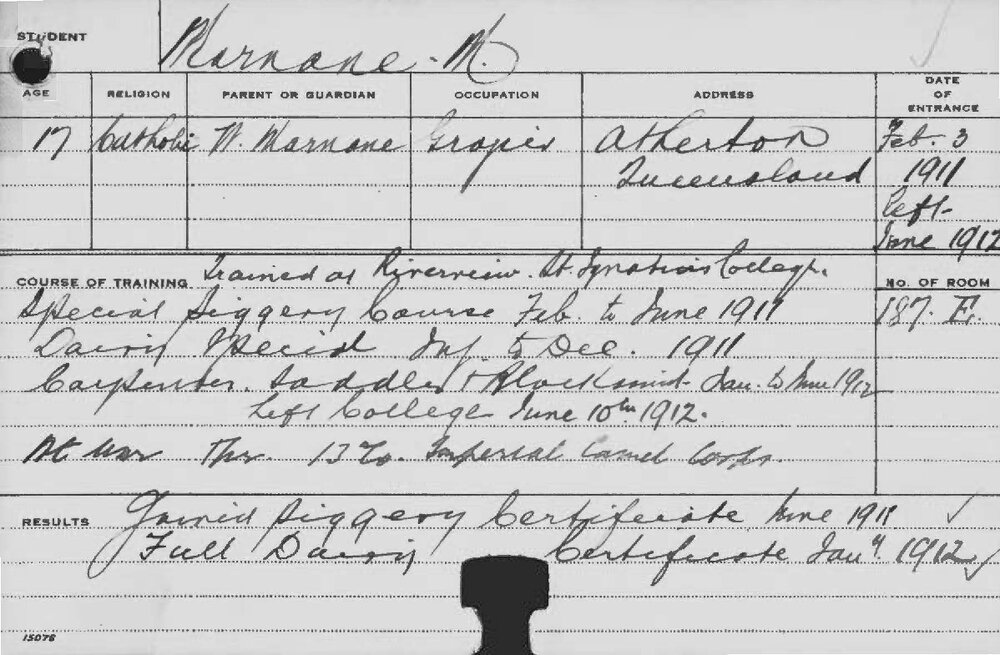 STUDENT Marnane. M.
AGE RELIGION PARENT OR GUARDIAN OCCUPATION ADDRESS DATE OF ENTRANCE
17 Catholic W. Marnane Grazier Atherton Feb. 3
Queensland 1911
left
June 1912
COURSE OF TRAINING Trained at Riverview. St. Ignatius College. NO. OF ROOM
Special Piggery Course Feb. to June 1911 187. E.
Dairy Special to Dec. 1911
Carpenter. Saddler + Blacksmith Jan. to June 1912
Left College June 10th 1912.
At War Tpr. Imperial Camel Corps.
RESULTS Gained Piggery Certificate June 1911
Full Dairy Certificate Jany. 1912
15078